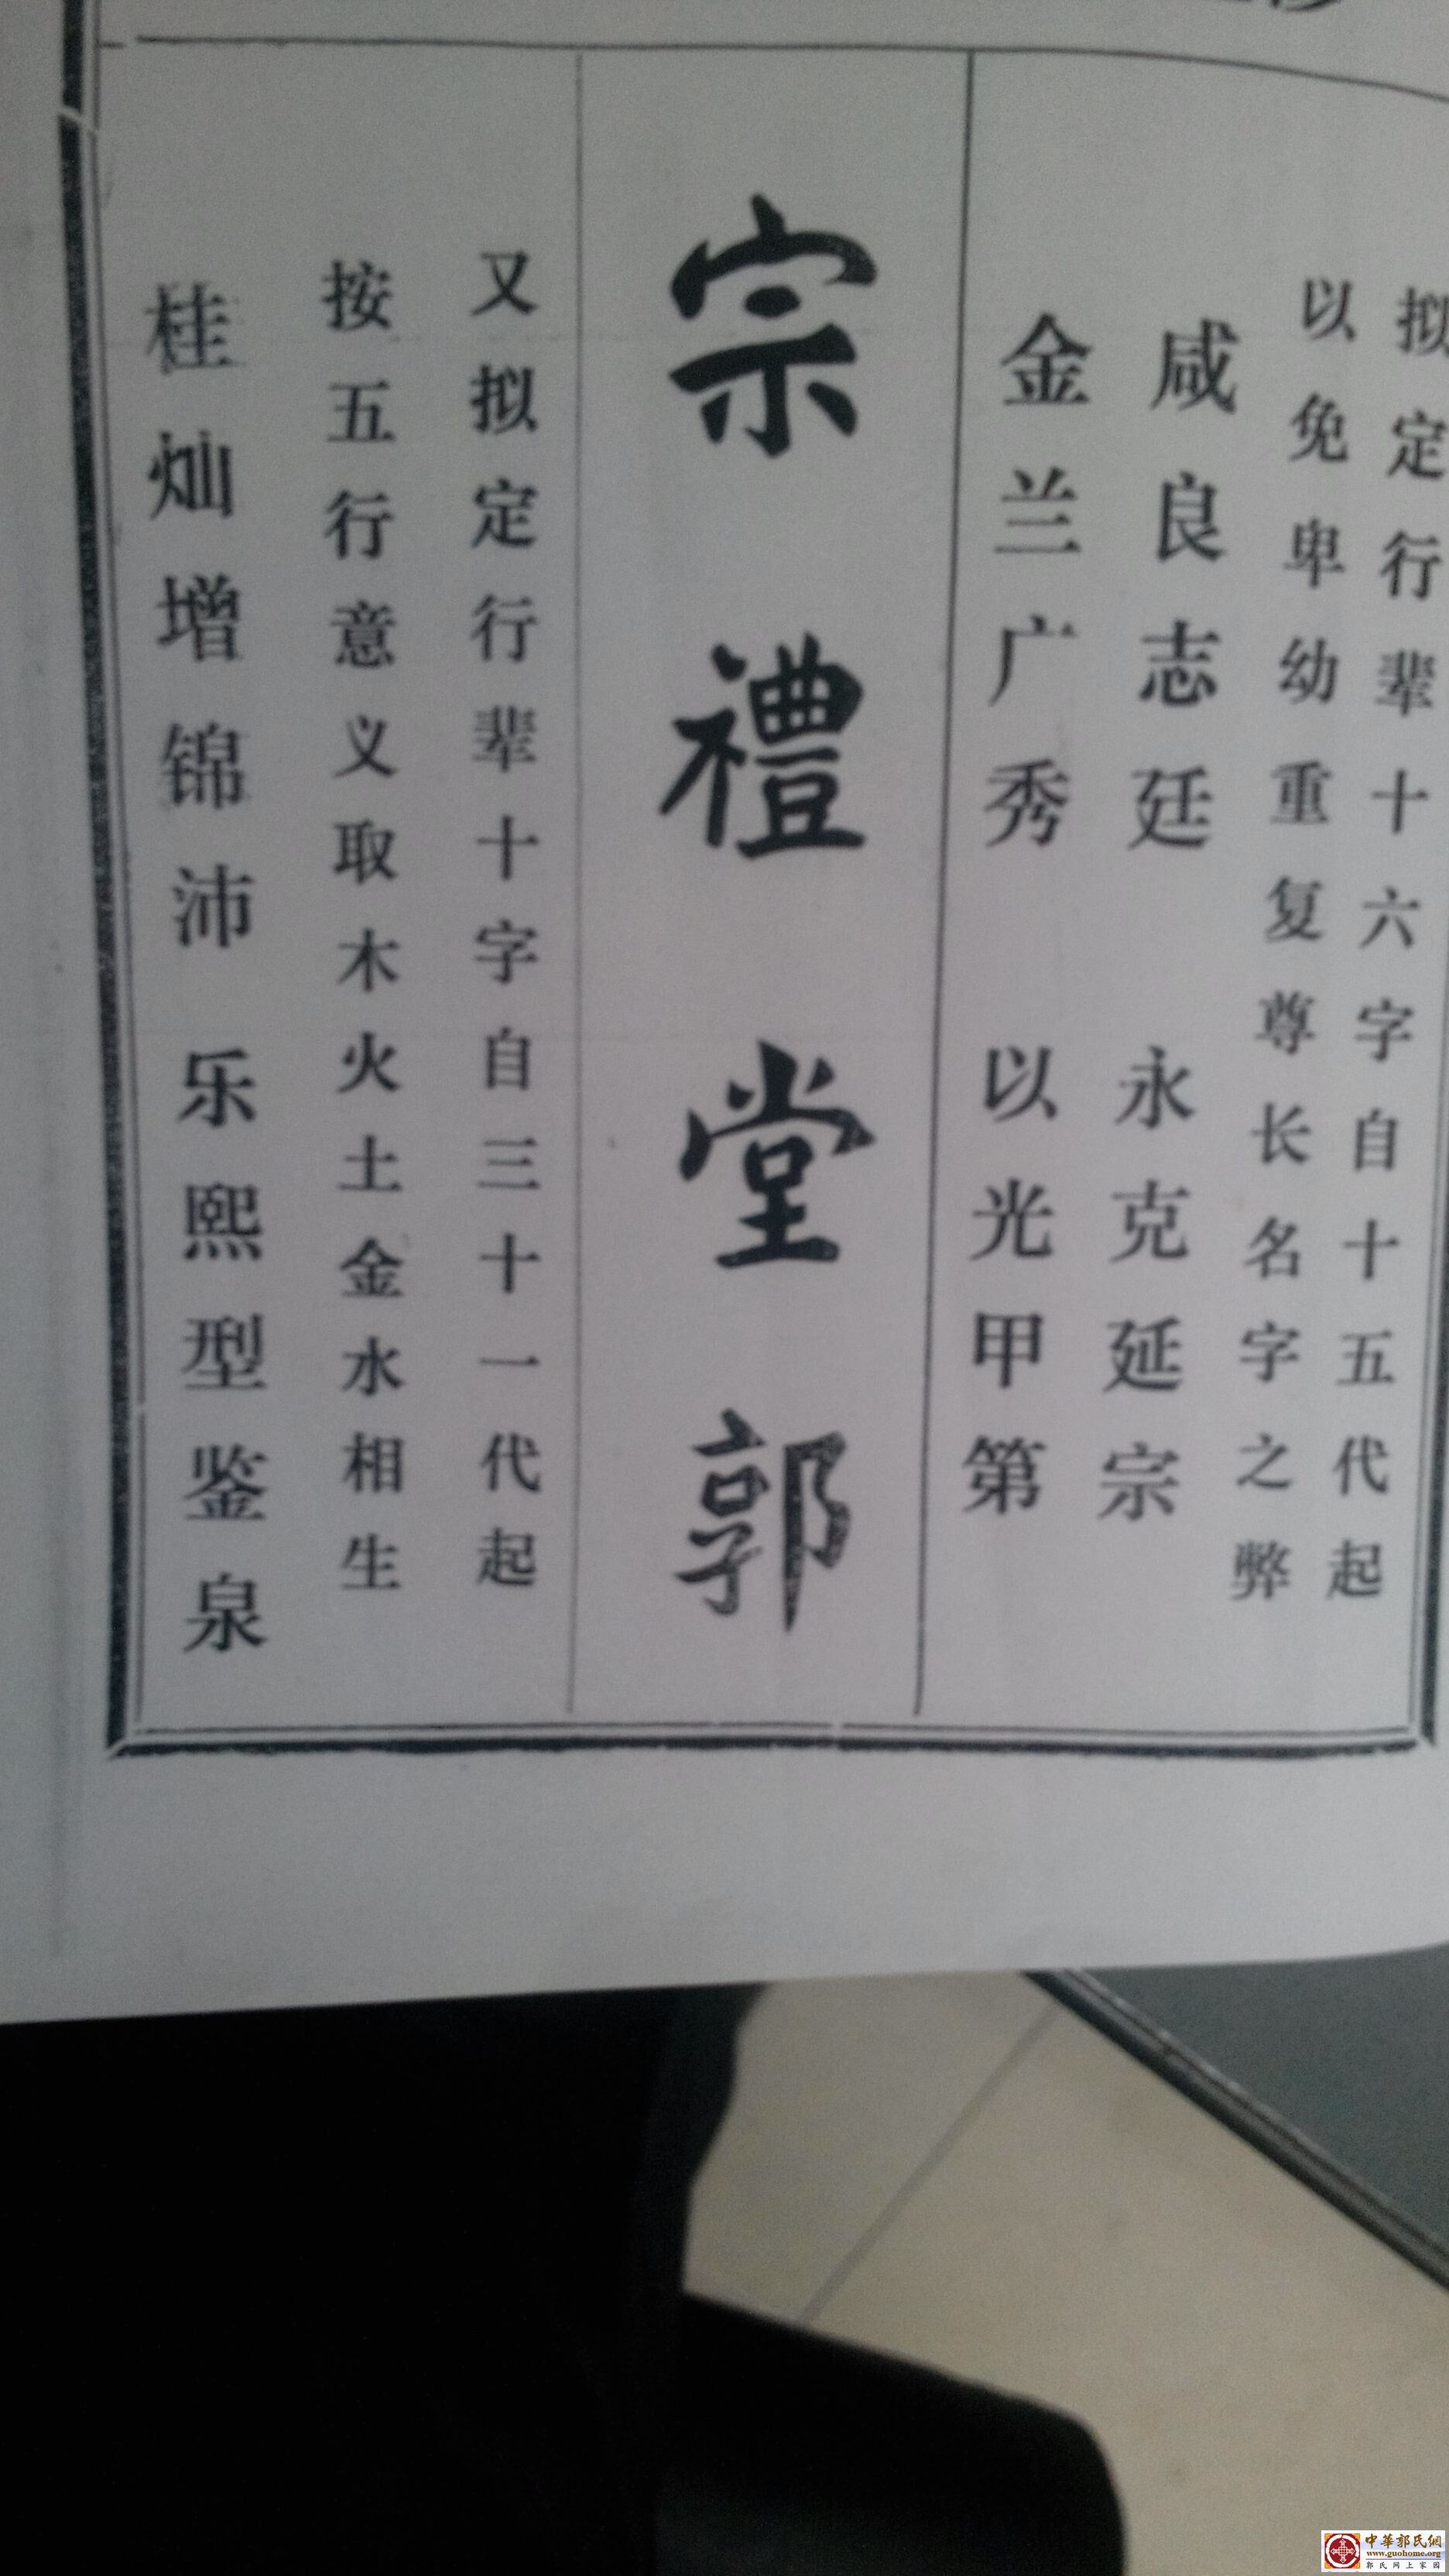 拟定行辈十六字自十五代起
以免卑幼重复尊长名字之弊
咸良志廷 永克延宗
金兰广秀 以光甲第
宗禮堂郭
又拟定行辈十字自三十一代起
按五行意义取木火土金水相生
桂灿增锦沛 乐熙型鉴泉
中華郭氏網
www.guohome.org
郭氏网上家园